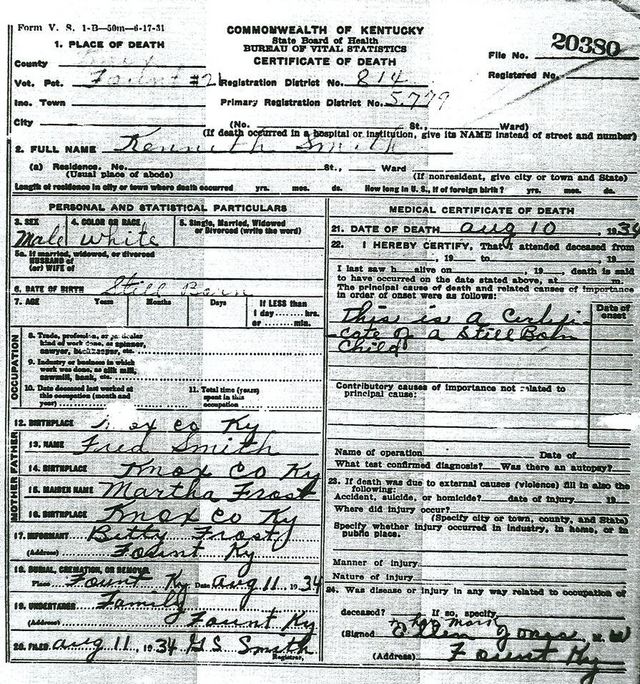 Form V. S. 1-B—50m—6-17-31
COMMONWEALTH OF KENTUCKY
State Board of Health
BUREAU OF VITAL STATISTICS
CERTIFICATE OF DEATH
File No. 20380
Registered No.
1. PLACE OF DEATH
County Knox
Vot. Pct. Fount #21 Registration District No. 814
Inc. Town Primary Registration District No. 5779
City (No. St., Ward)
(If death occurred in a hospital or institution, give its NAME instead of street and number)
2. FULL NAME Kenneth Smith
(a) Residence. No. St., Ward
(Usual place of abode) (If nonresident, give city or town and State)
Length of residence in city or town where death occurred yrs. mos. ds. How long in U. S., if of foreign birth? yrs. mos. ds.
PERSONAL AND STATISTICAL PARTICULARS
3. SEX 4. COLOR OR RACE 5. Single, Married, Widowed or Divorced (write the word)
Male White
5a. If married, widowed, or divorced
HUSBAND of
(or) WIFE of
6. DATE OF BIRTH Still Born
7. AGE Years Months Days If LESS than
1 day hrs.
or min.
OCCUPATION
8. Trade, profession, or particular
kind of work done, as spinner,
sawyer, bookkeeper, etc.
9. Industry or business in which
work was done, as silk mill,
sawmill, bank, etc.
10. Date deceased last worked at
this occupation (month and
year)
11. Total time (years)
spent in this
occupation
12. BIRTHPLACE Knox co Ky
FATHER
13. NAME Fred Smith
14. BIRTHPLACE Knox Co Ky
MOTHER
15. MAIDEN NAME Martha Frost
16. BIRTHPLACE Knox Co Ky
17. INFORMANT Bitty Frost
(Address) Fount Ky
18. BURIAL, CREMATION, OR REMOVAL
Place Fount Ky Date Aug 11, 1934
19. UNDERTAKER Family
Fount Ky
20. FILED Aug 11, 1934 G.S. Smith
Registrar.
MEDICAL CERTIFICATE OF DEATH
21. DATE OF DEATH Aug 10 1934
22. I HEREBY CERTIFY, That I attended deceased from
, 19 to , 19
I last saw h alive on , 19 , death is said
to have occurred on the date stated above, at m.
The principal cause of death and related causes of importance
in order of onset were as follows:
Date of
onset
This is a Certifi-
cate of a Still Born
Child
Contributory causes of importance not related to
principal cause:
Name of operation Date of
What test confirmed diagnosis? Was there an autopsy?
23. If death was due to external causes (violence) fill in also the
following:
Accident, suicide, or homicide? date of injury 19
Where did injury occur?
(Specify city or town, county, and State)
Specify whether injury occurred in industry, in home, or in
public place.
Manner of injury
Nature of injury
24. Was disease or injury in any way related to occupation of
deceased? If so, specify
her mark
(Signed Ellen Jones
(Address) Fount Ky